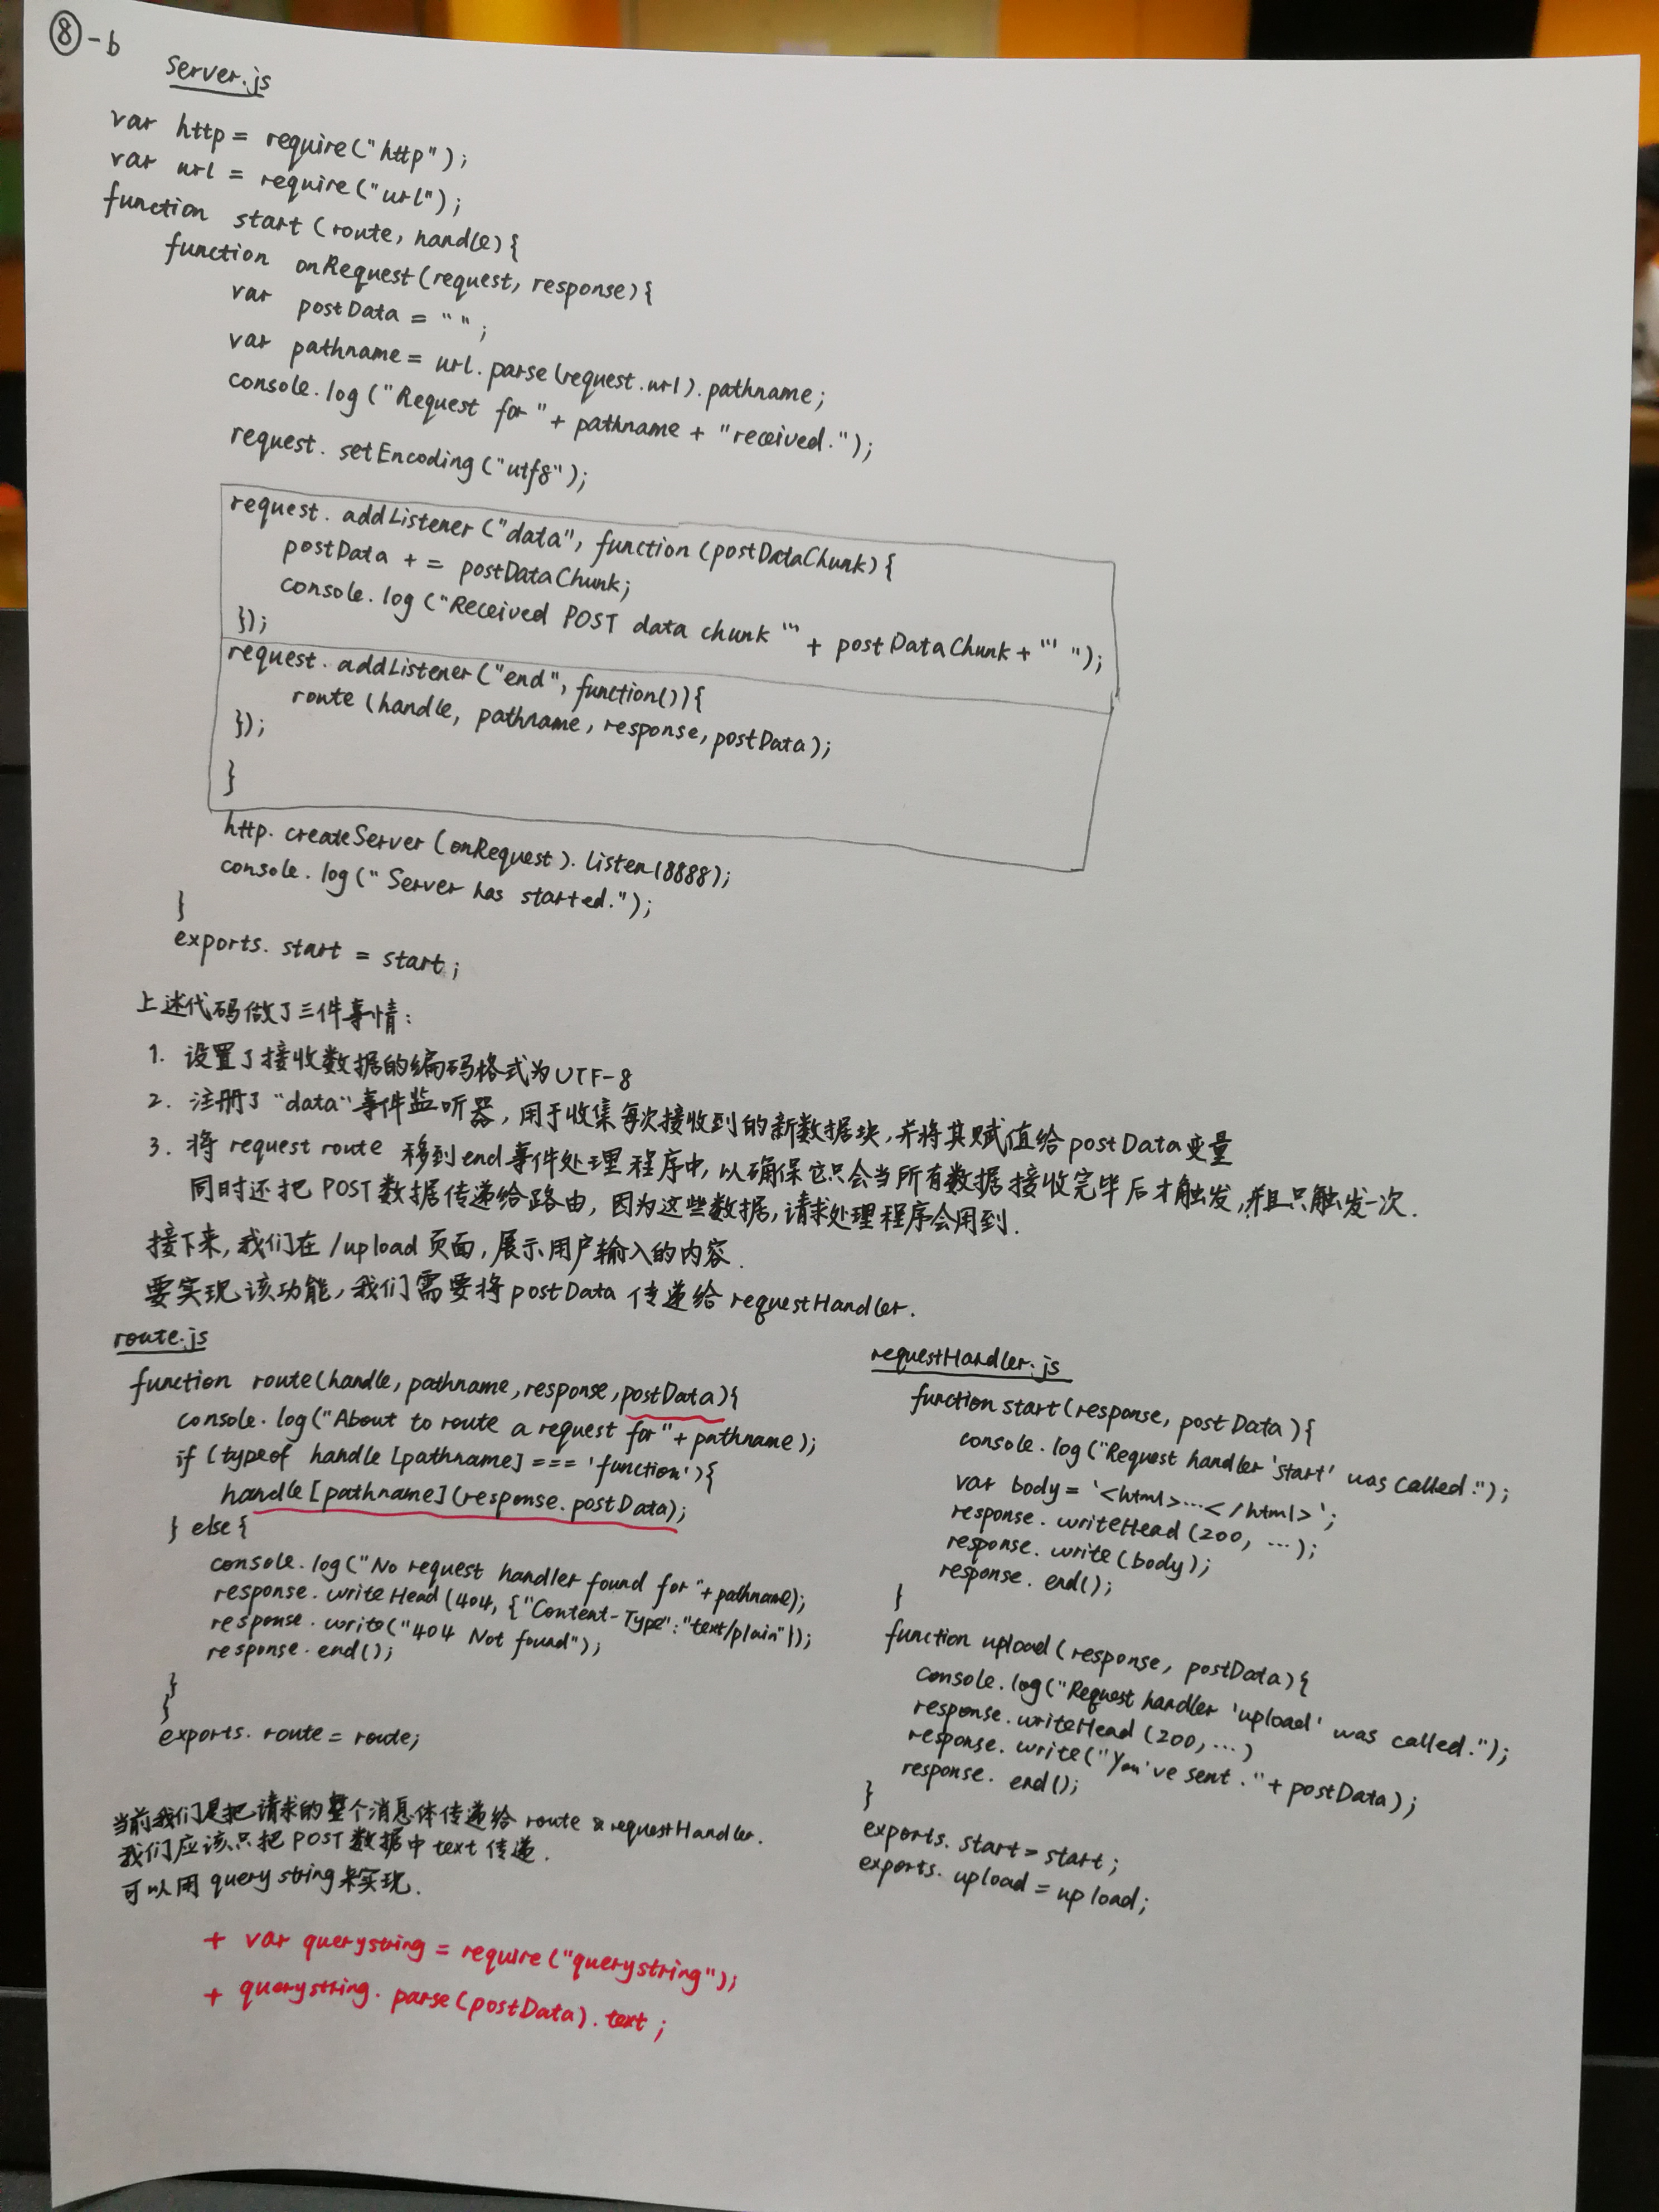 ⑧-b
server.js
var http = require("http");
var url = require("url");
function start (route, handle){
function onRequest(request, response){
var postData = " ";
var pathname = url.parse(request.url).pathname;
console.log("Request for" + pathname + "received.");
request.setEncoding("utf8");
request.addListener("data", function(postDataChunk){
postData += postDataChunk;
console.log("Received POST data chunk '" + postDataChunk + "' ");
});
request.addListener("end", function()){
route (handle, pathname, response, postData);
});
}
http.createServer(onRequest).listen(8888);
console.log(" Server has started.");
}
exports.start = start;
上述代码做了三件事情:
1. 设置了接收数据的编码格式为UTF-8
2. 注册了"data"事件监听器,用于收集每次接收到的新数据块,并将其赋值给postData变量
3. 将request route 移到end事件处理程序中,以确保它只会当所有数据接收完毕后才触发,并且只触发一次.
同时还把POST数据传递给路由,因为这些数据,请求处理程序会用到.
接下来,我们在/upload页面,展示用户输入的内容.
要实现该功能,我们需要将postData传递给requestHandler.
route.js
function route(handle, pathname, response, postData){
console.log("About to route a request for" + pathname);
if (typeof handle[pathname] === 'function'){
handle[pathname](response.postData);
} else {
console.log("No request handler found for" + pathname);
response.writeHead(404, {"Content-Type": "text/plain"});
response.write("404 Not found");
response.end();
}
}
exports.route = route;
当前我们是把请求的整个消息体传递给route & requestHandler.
我们应该只把POST数据中text传递.
可以用querystring来实现.
+ var querystring = require("querystring");
+ querystring.parse(postData).text;
requestHandler.js
function start(response, postData){
console.log("Request handler 'start' was called.");
var body = '<html>...</html>';
response.writeHead(200, ...);
response.write(body);
response.end();
}
function upload(response, postData){
console.log("Request handler 'upload' was called.");
response.writeHead(200, ...)
response.write("You've sent." + postData);
response.end();
}
exports.start = start;
exports.upload = upload;